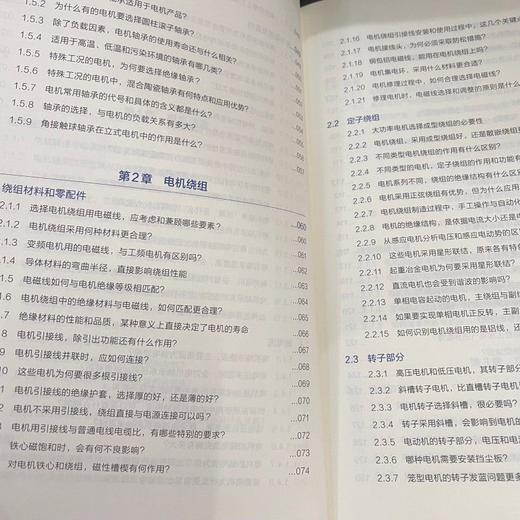 轴承适用于电机产品?
1.5.2 为什么有的电机要选择圆柱滚子轴承?
1.5.3 除了负载因素,电机轴承的使用寿命还与什么相关? ...050
1.5.4 适用于高温、低温和污染环境的轴承有哪几类?
1.5.5 特殊工况的电机,为何要选择绝缘轴承?
1.5.6 特殊工况的电机中,混合陶瓷轴承有何特点和应用优势?
1.5.7 电机常用轴承的代号和具体的含义都是什么? ...055
1.5.8 轴承的选择,与电机的负载关系有多大?
1.5.9 角接触球轴承在立式电机中的作用是什么? ...057
第2章 电机绕组
绕组材料和零配件
2.1.1 选择电机绕组用电磁线,应考虑和兼顾哪些要素? ...060
.1.2 电机绕组采用何种材料更合理? ...061
1.3 变频电机用的电磁线,与工频电机有区别吗? ...062
1.4 导体材料的弯曲半径,直接影响绕组性能 ...063
1.5 电磁线如何与电机绝缘等级相匹配? ...064
1.6 电机绕组中的绝缘材料与电磁线,如何匹配更合理? ...065
1.7 绝缘材料的性能和品质,某种意义上直接决定了电机的寿命 ...066
8 电机引接线,除引出功能还有什么作用? ...066
9 电机引接线并联时,应如何连接? ...067
10 这些电机为何要很多根引接线? ...068
1 电机引接线的绝缘护套,选择厚的好,还是薄的好? ...069
2 电机不采用引接线,绕组直接与电源连接可以吗? ...070
电机用引接线与普通电线电缆比,有哪些特别的要求? ...072
铁心磁饱和时,会有何不良影响? ...073
对电机铁心和绕组,磁性槽楔有何作用? ...074
2.1.16 电机绕组引接线安装和使用过程中,这几个关键
2.1.17 电机接线头,为何必须采取防松措施?
2.1.18 铜包铝电磁线,能用在电机绕组上吗?
2.1.19 电机集电环,采用什么材料更合适?
2.1.20 电机修理过程中,如何合理选择电磁线?
2.1.21 修理电机时,电磁线选择和调整的原则是什么
2.2 定子绕组
2.2.1 大功率电机选择成型绕组的必要性
2.2.2 电机绕组,采用成型绕组好,还是散嵌绕组
2.2.3 不同类型电机绕组的作用有什么区别?
2.2.4 不同类型的电机,定子绕组的作用和功能有
2.2.5 电机系列不同,绕组的绝缘结构有什么区
2.2.6 电机采用正弦绕组有优势,但为什么应用
2.2.7 电机绕组制造过程中,手工操作与自动化
2.2.8 电机的绝缘结构,是依据电流大小还是
2.2.9 从感应电机分析电压和感应电动势的区
2.2.10 这些电机采用星形联结,原来各有特
2.2.11 起重冶金电机为何要采用星形联结?
2.2.12 直流电机也会受到谐波的影响吗?
2.2.13 单相电容起动的电机,主绕组与副绕
2.2.14 如果要实现单相电机正反转,主副
2.2.15 如何识别电机绕组用的是铝线,还
2.3 转子部分
2.3.1 高压电机和低压电机,其转子部分
2.3.2 斜槽转子电机,比直槽转子电机
2.3.3 电机转子选择斜槽,很必要吗?
2.3.4 转子采用斜槽,会影响到电机的
2.3.5 电动机的转子部分,电压和电
2.3.6 哪种电机需要安装挡尘板?
2.3.7 笼型电机的转子发蓝问题更多